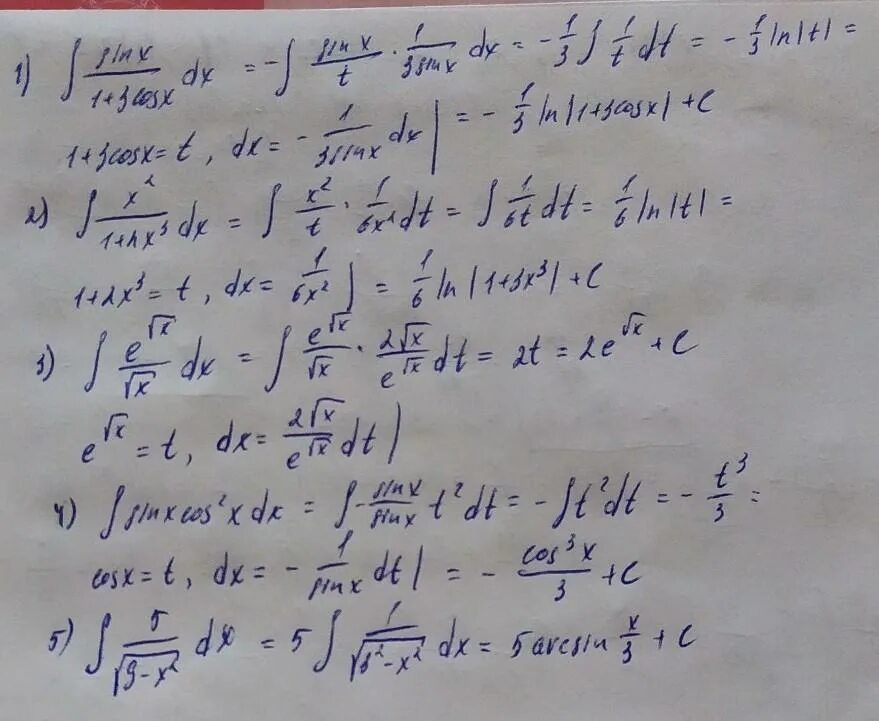 1) ∫ sinx/(1+3cosx) dx = -∫ sinx/t · 1/(3sinx) dx = -1/3 ∫ 1/t dt = -1/3 ln|t| =
1+3cosx=t, dx= - 1/(3sinx) dx | = - 1/3 ln|1+3cosx| +C
2) ∫ x²/(1+2x³) dx = ∫ x²/t · 1/(6x²) dt = ∫ 1/(6t) dt = 1/6 ln|t| =
1+2x³ = t, dx = 1/(6x²) | = 1/6 ln|1+3x³| +C
3) ∫ e^√x/√x dx = ∫ e^√x/√x · 2√x/e^√x dt = 2t = 2e^√x + C
e^√x = t, dx = 2√x/e^√x dt |
4) ∫ sinx cos²x dx = ∫ -sinx/sinx t² dt = -∫ t² dt = - t³/3 =
cosx=t, dx = - 1/sinx dt | = - cos³x/3 + C
5) ∫ 5/√(9-x²) dx = 5 ∫ 1/√(3²-x²) dx = 5 arcsin x/3 + C